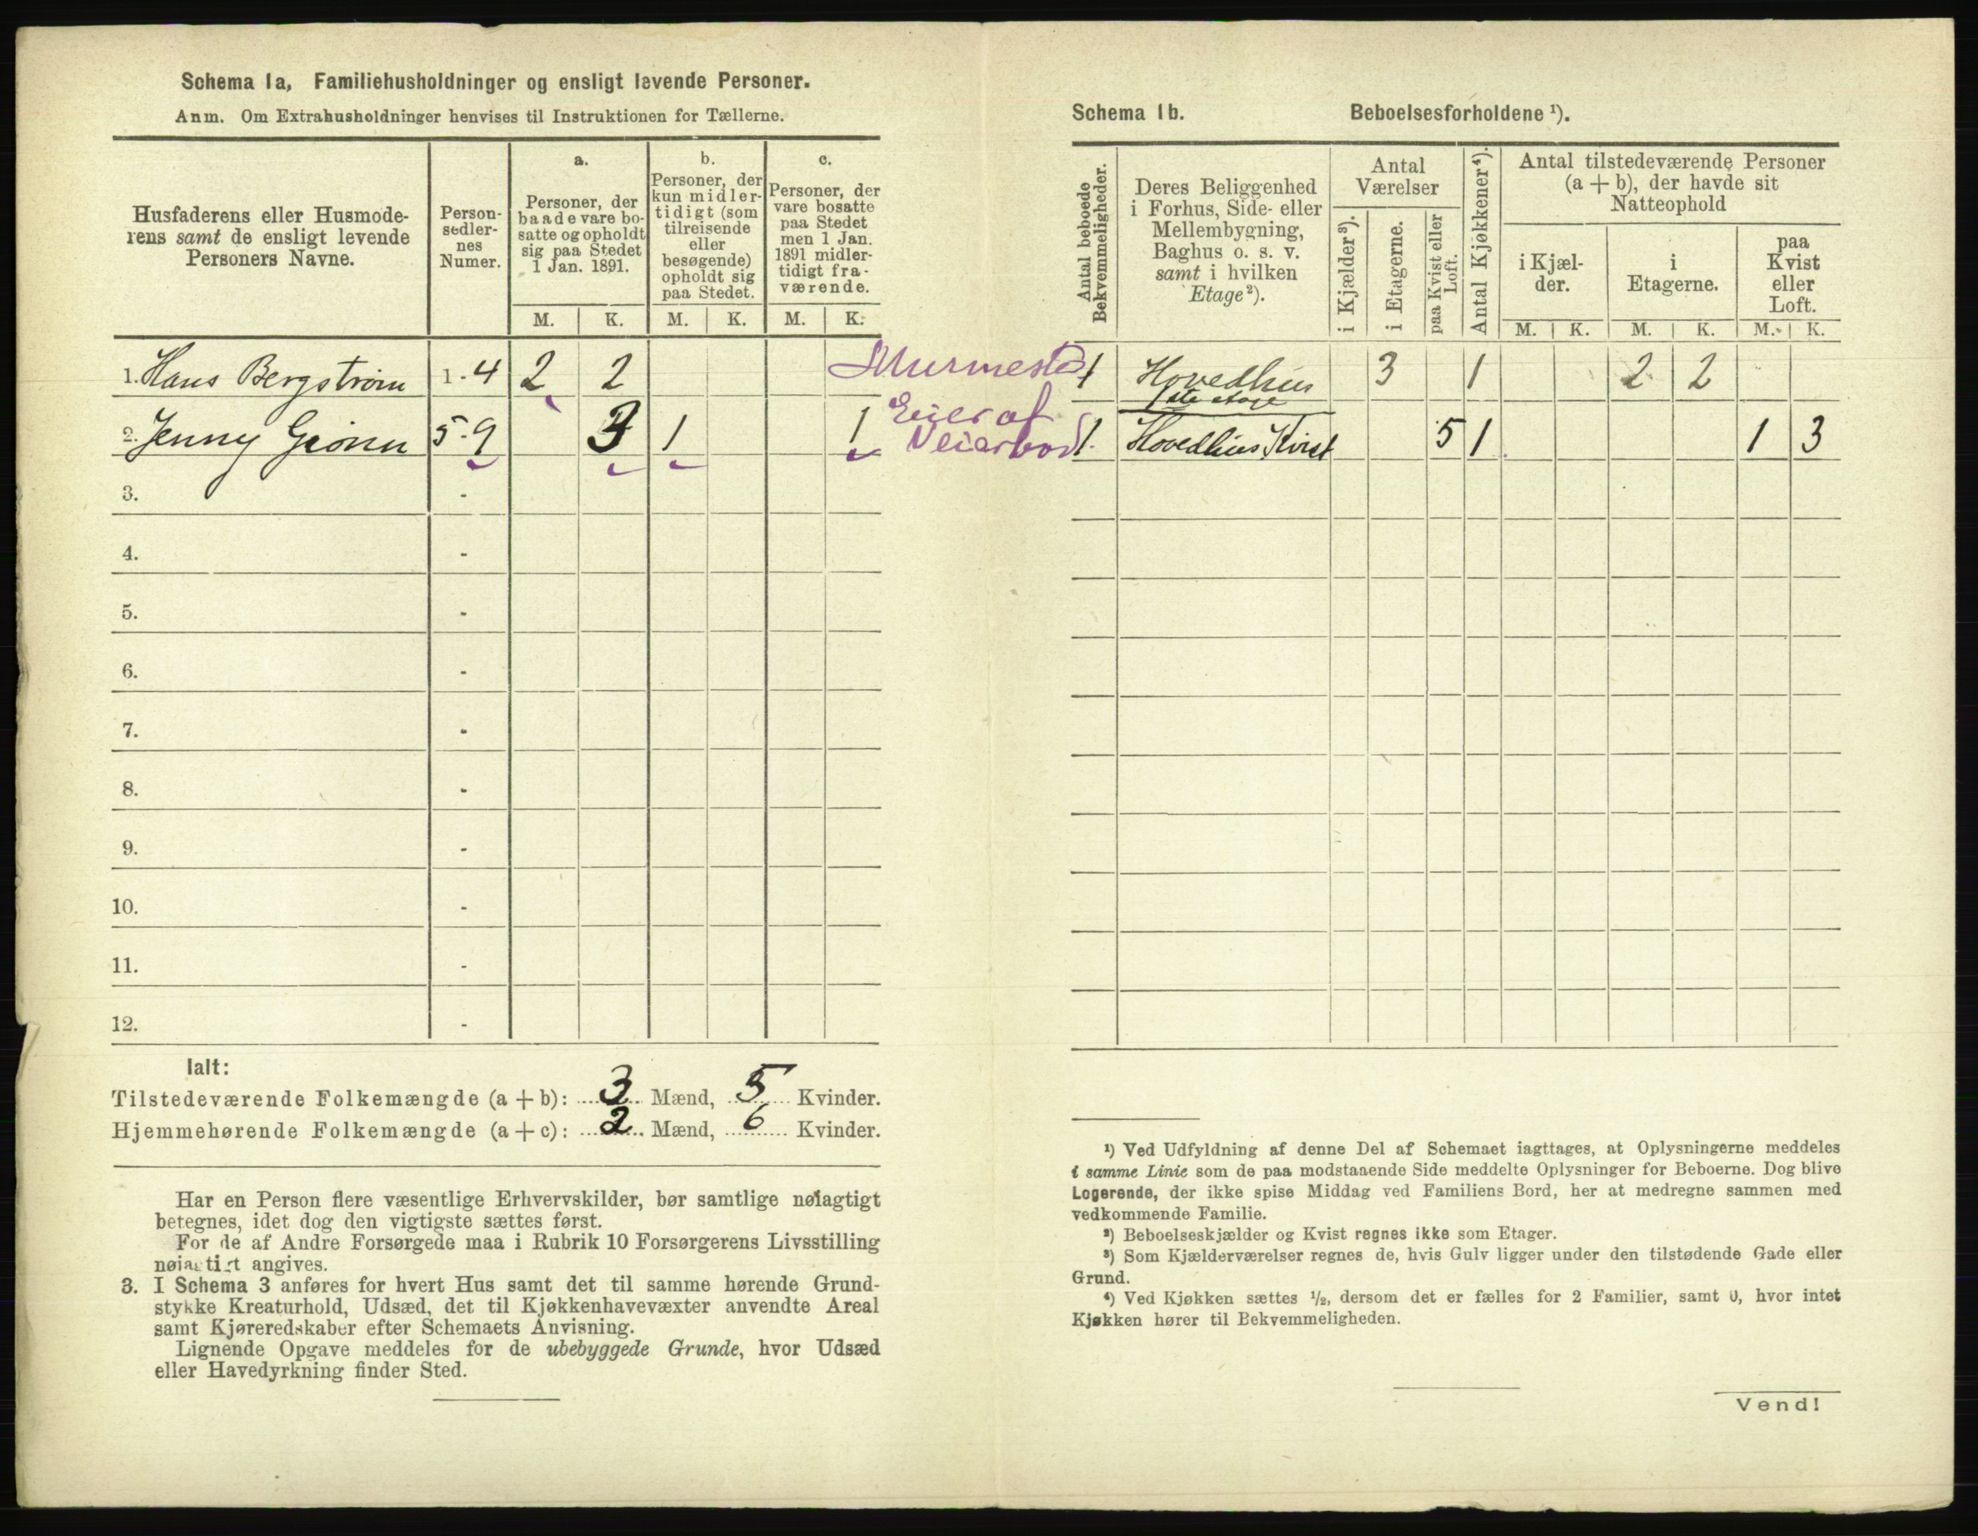 Schema 1a, Familiehusholdninger og ensligt levende Personer.
Anm. Om Extrahusholdninger henvises til Instruktionen for Tællerne.
Husfaderens eller Husmode-
rens samt de ensligt levende
Personers Navne.
Person-
sedler-
nes
Numer.
a.
Personer, der
baade vare bo-
satte og opholdt
sig paa Stedet
1 Jan. 1891.
b.
Personer, der
kun midler-
tidigt (som
tilreisende
eller
besøgende)
opholdt sig
paa Stedet.
c.
Personer, der
vare bosatte
paa Stedet
men 1 Jan.
1891 midler-
tidigt fra-
værende.
M. K. M. K. M. K.
1. Hans Bergstrøm 1 - 4 2 2
Murmester
2. Jenny Grønn 5 - 9 3 1 1
Eier af
Veiarbod
3. -
4. -
5. -
6. -
7. -
8. -
9. -
10. -
11. -
12. -
Ialt:
Tilstedeværende Folkemængde (a + b): 3 Mænd, 5 Kvinder.
Hjemmehørende Folkemængde (a + c): 2 Mænd, 6 Kvinder.
Har en Person flere væsentlige Erhvervskilder, bør samtlige nøiagtigt
betegnes, idet dog den vigtigste sættes først.
For de af Andre Forsørgede maa i Rubrik 10 Forsørgerens Livsstilling
nøiagtigt angives.
3. I Schema 3 anføres for hvert Hus samt det til samme hørende Grund-
stykke Kreaturhold, Udsæd, det til Kjøkkenhavevæxter anvendte Areal
samt Kjøreredskaber efter Schemaets Anvisning.
Lignende Opgave meddeles for de ubebyggede Grunde, hvor Udsæd
eller Havedyrkning finder Sted.
Schema 1b. Beboelsesforholdene ¹).
Antal beboede
Bekvemmeligheder.
Deres Beliggenhed
i Forhus, Side- eller
Mellembygning,
Baghus o. s. v.
samt i hvilken
Etage²).
Antal
Værelser
i Kjælder³).
i Etagerne.
paa Kvist eller
Loft.
Antal Kjøkkener⁴).
Antal tilstedeværende Personer
(a + b), der havde sit
Natteophold
i Kjæl-
der.
i
Etagerne.
paa
Kvist
eller
Loft.
M. K. M. K. M. K.
1 Hovedhus 3 1 2 2
1ste etage
1. Hovedhus Kvist 5 1 1 3
¹) Ved Udfyldning af denne Del af Schemaet iagttages, at Oplysningerne meddeles
i samme Linie som de paa modstaaende Side meddelte Oplysninger for Beboerne. Dog blive
Logerende, der ikke spise Middag ved Familiens Bord, her at medregne sammen med
vedkommende Familie.
²) Beboelseskjælder og Kvist regnes ikke som Etager.
³) Som Kjælderværelser regnes de, hvis Gulv ligger under den tilstødende Gade eller
Grund.
⁴) Ved Kjøkken sættes ½, dersom det er fælles for 2 Familier, samt 0, hvor intet
Kjøkken hører til Bekvemmeligheden.
Vend!